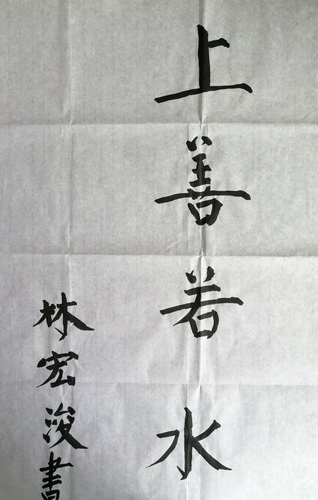 上善若水
林宏浚書